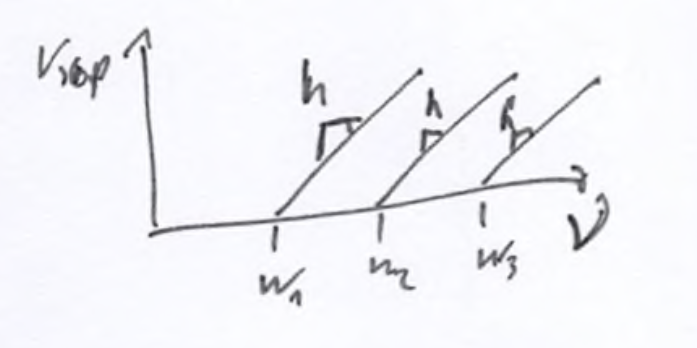 V stop
h h h
ν
W₁ W₂ W₃